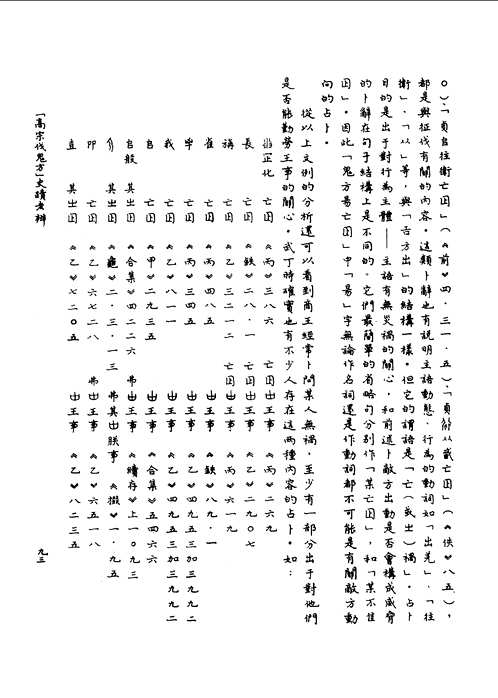 ○）、「貞自往衛亡囚」（《前》四·三一·五）、「貞　以　亡囚」（《佚》八五），
都是與征伐有關的內容。這類卜辭也有說明主語動態、行為的動詞如「出羌」、「往
衛」、「以」等，與「舌方出」的結構一樣。但它的謂語是「亡（或㞢）禍」。占卜
目的是出于對行為主體——主語有無災禍的關心，和前述卜敵方出動是否會構成威脅
的卜辭在句子結構上是不同的，它們最簡單的省略句分別作「某亡囚」，和「某不隹
囚」。因此「鬼方昜亡囚」中「昜」字無論作名詞還是作動詞都不可能是有關敵方動
向的占卜。
從以上文例的分析還可以看到商王經常卜問某人無禍，至少有一部分出于對他們
是否能勤勞王事的關心。武丁時確實也有不少人存在這兩種內容的占卜。如：
正化　亡囚　《丙》三八六　亡囚　王事　《丙》二六九
長　亡囚　《鉄》二八·一　亡囚　王事　《乙》三九〇七
亡囚　《乙》三二一二　亡囚　王事　《丙》六一九
雀　亡囚　《丙》四八五　王事　《鉄》八九·一
亡囚　《丙》三四五　王事　《乙》四九五三加三九九二
我　亡囚　《乙》八一一　王事　《乙》四九五三加三九九二
自　亡囚　《甲》二九三五　王事　《合集》五四六六
自般　其㞢囚　《合集》四二二六　王事　《續存》上一〇九三
其㞢囚　《龜》二·三·一三　弗其　朕事　《掇》一·九五
亡囚　《乙》六七二八　弗　王事　《乙》六五一八
其㞢囚　《乙》七二〇五　王事　《乙》八二三五
「高宗伐鬼方」史蹟考辨
九三